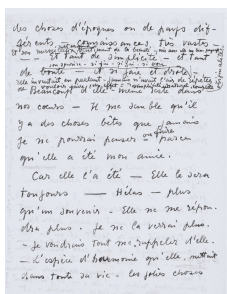 des choses d'époques ou de pays dif-
férents
et tant de simplicité — et tant
de bonté — et si gaie et drôle —
Beaucoup d'elle même reste dans
nos cœurs — Il me semble qu'il
y a des choses bêtes que jamais
je ne pourrai penser ou faire parce
qu'elle a été mon amie.
Car elle l'a été — Elle le sera
toujours — Hélas — plus
qu'un souvenir — Elle ne me répon-
dra plus. Je ne la verrai plus.
— Je voudrais tout me rappeler d'elle.
— L'espèce d'harmonie qu'elle mettait
dans toute sa vie — les jolies choses